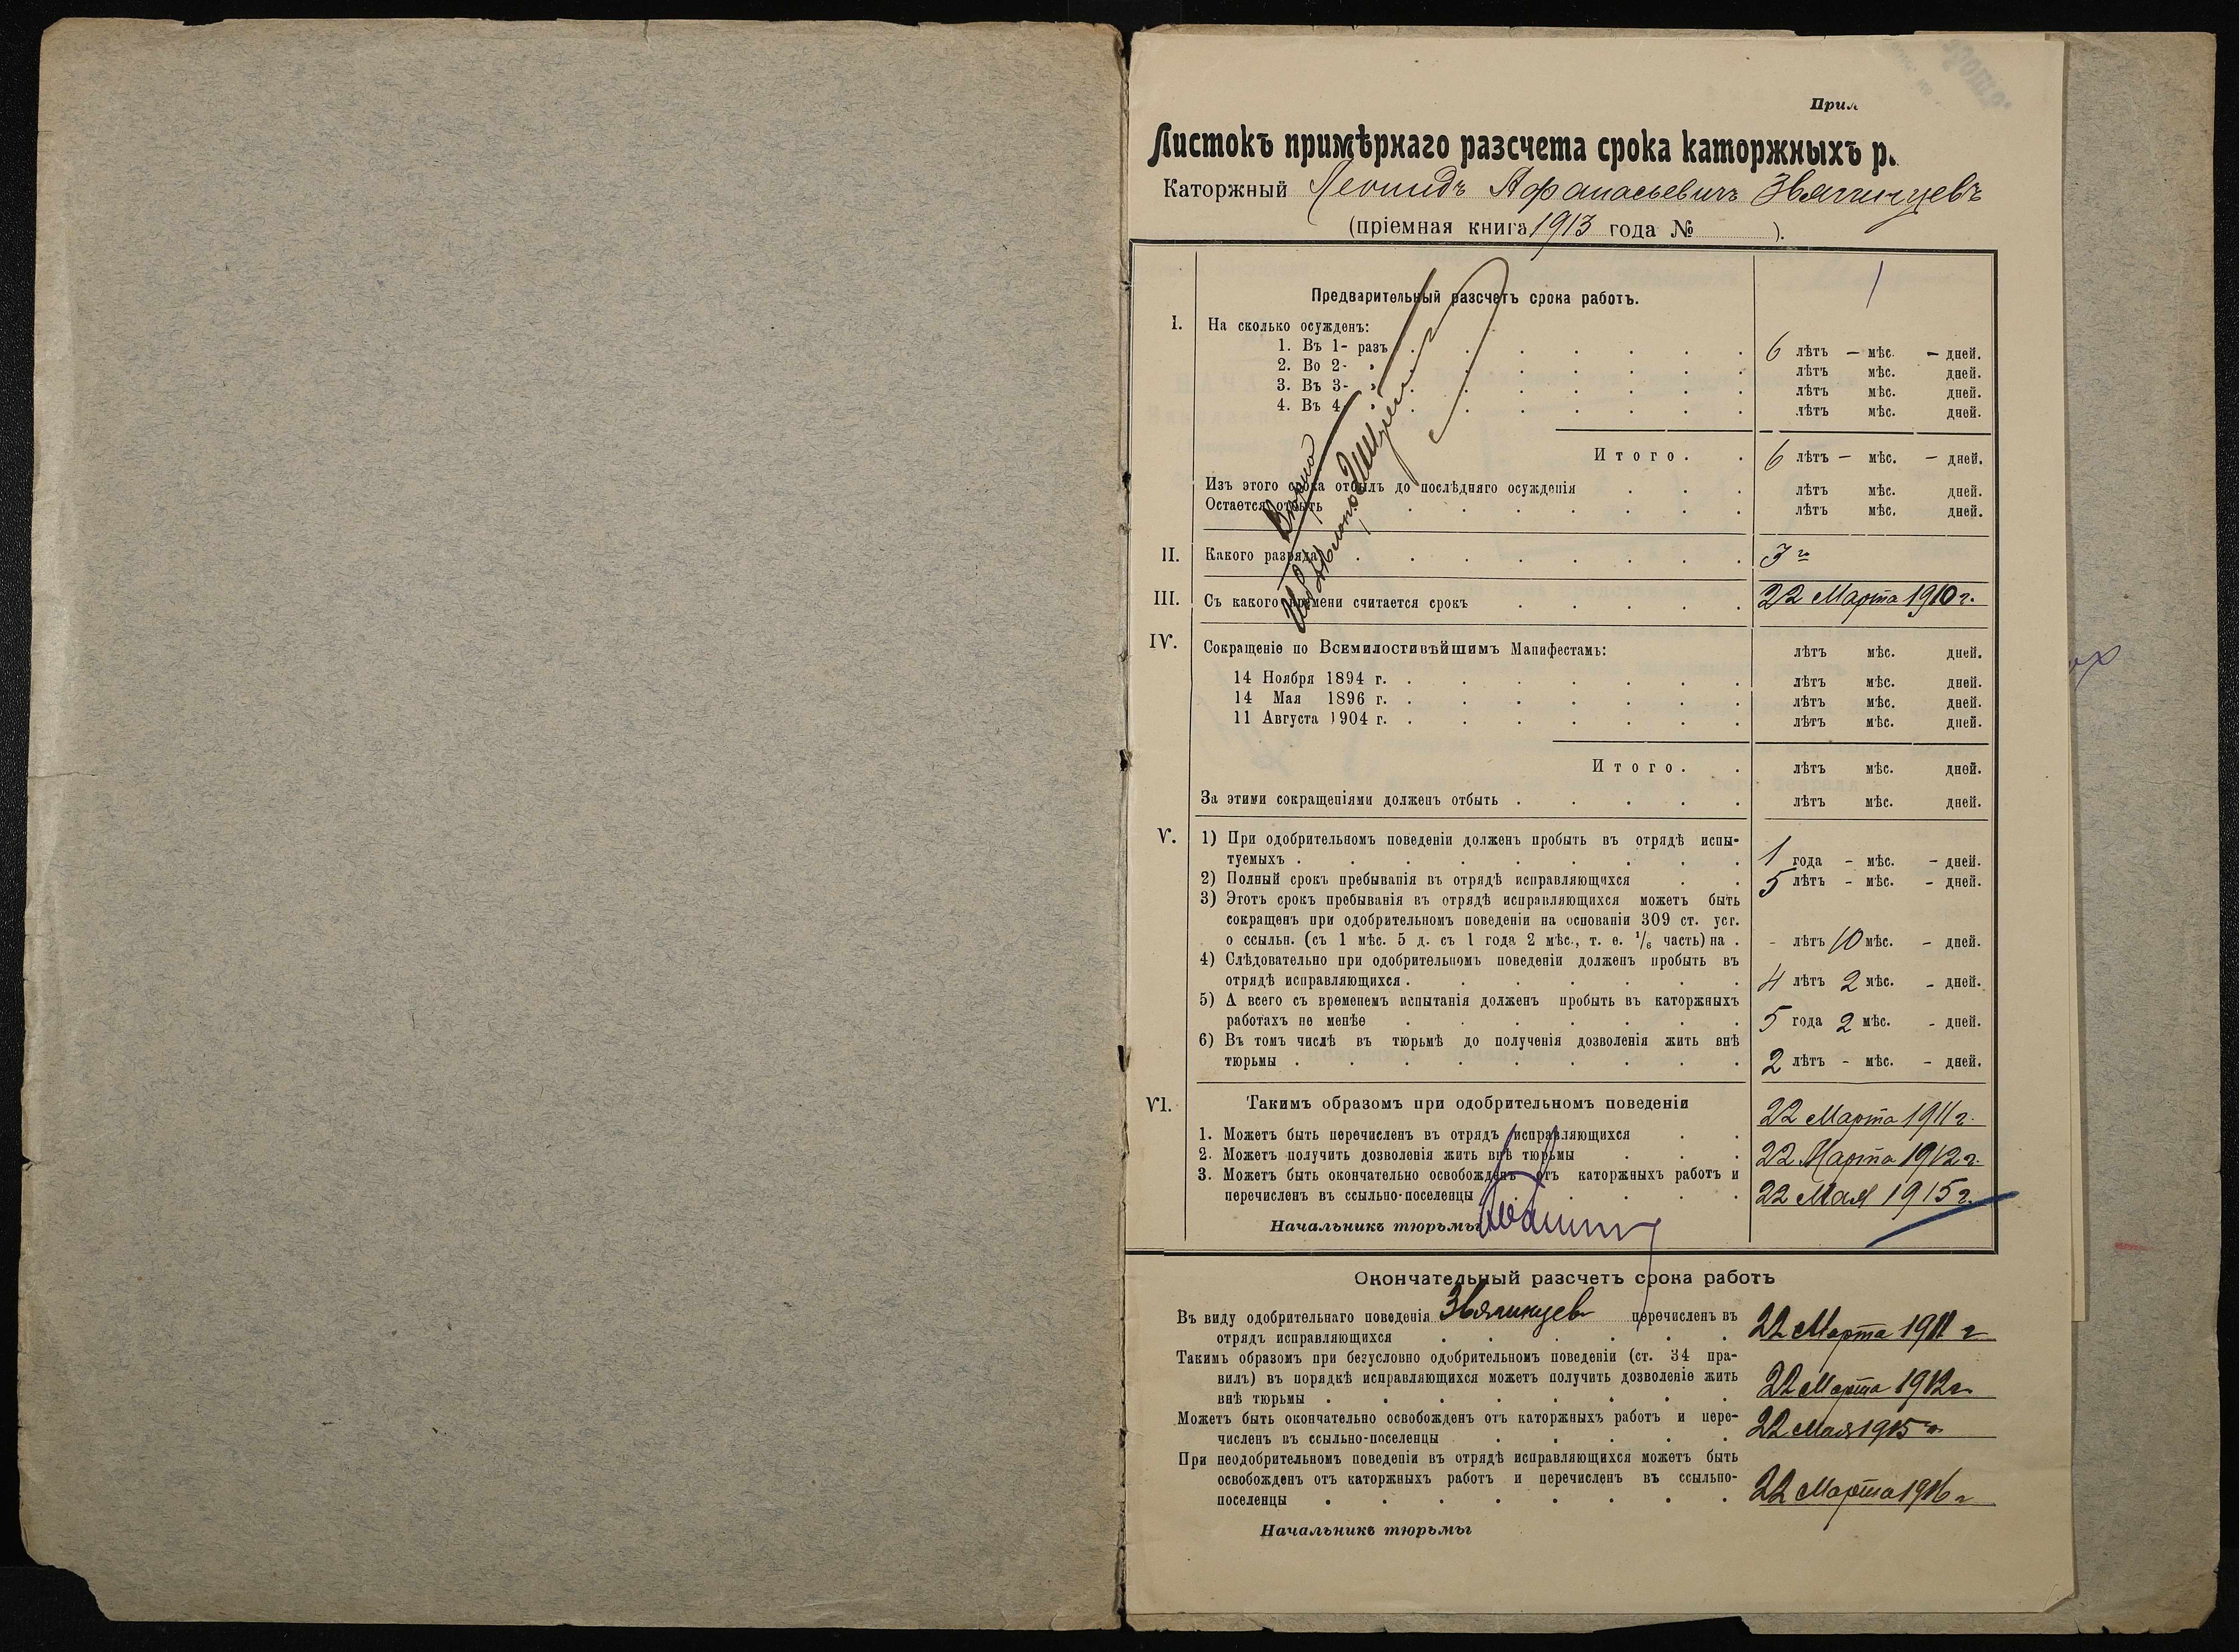 Листокъ примѣрнаго разсчета срока каторжныхъ р.
Каторжный Леонидъ Афанасьевичъ Звягинцевъ
(пріемная книга 1913 года № ).
1
Предварительный разсчетъ срока работъ.
I. На сколько осужденъ:
1. Въ 1- разъ 6 лѣтъ — мѣс. — дней.
2. Во 2- » лѣтъ мѣс. дней.
3. Въ 3- » лѣтъ мѣс. дней.
4. Въ 4- лѣтъ мѣс. дней.
Итого. 6 лѣтъ — мѣс. — дней.
Изъ этого срока отбылъ до послѣдняго осужденія лѣтъ мѣс. дней.
Остается отбыть лѣтъ мѣс. дней.
Вѣрно
II. Какого разряда 3го
III. Съ какого времени считается срокъ 22 Марта 1910 г.
IV. Сокращеніе по Всемилостивѣйшимъ Манифестамъ: лѣтъ мѣс. дней.
14 Ноября 1894 г. лѣтъ мѣс. дней.
14 Мая 1896 г. лѣтъ мѣс. дней.
11 Августа 1904 г. лѣтъ мѣс. дней.
Итого. лѣтъ мѣс. дней.
За этими сокращеніями долженъ отбыть лѣтъ мѣс. дней.
V. 1) При одобрительномъ поведеніи долженъ пробыть въ отрядѣ испы-
туемыхъ 1 года - мѣс. - дней.
2) Полный срокъ пребыванія въ отрядѣ исправляющихся 5 лѣтъ - мѣс. - дней.
3) Этотъ срокъ пребыванія въ отрядѣ исправляющихся можетъ быть
сокращенъ при одобрительномъ поведеніи на основаніи 309 ст. уст.
о ссыльн. (съ 1 мѣс. 5 д. съ 1 года 2 мѣс., т. е. 1/6 часть) на - лѣтъ 10 мѣс. - дней.
4) Слѣдовательно при одобрительномъ поведеніи долженъ пробыть въ
отрядѣ исправляющихся 4 лѣтъ 2 мѣс. - дней.
5) А всего съ временемъ испытанія долженъ пробыть въ каторжныхъ
работахъ не менѣе 5 года 2 мѣс. - дней.
6) Въ томъ числѣ въ тюрьмѣ до полученія дозволенія жить внѣ
тюрьмы 2 лѣтъ - мѣс. - дней.
VI. Такимъ образомъ при одобрительномъ поведеніи
1. Можетъ быть перечисленъ въ отрядъ исправляющихся 22 Марта 1911 г.
2. Можетъ получить дозволенія жить внѣ тюрьмы 22 Марта 1912 г.
3. Можетъ быть окончательно освобожденъ отъ каторжныхъ работъ и
перечисленъ въ ссыльно-поселенцы 22 Мая 1915 г.
Начальникъ тюрьмы
Окончательный разсчетъ срока работъ
Въ виду одобрительнаго поведенія Звягинцев перечисленъ въ
отрядъ исправляющихся 22 Марта 1911 г
Такимъ образомъ при безусловно одобрительномъ поведеніи (ст. 34 пра-
вилъ) въ порядкѣ исправляющихся можетъ получить дозволеніе жить
внѣ тюрьмы 22 Марта 1912 г.
Можетъ быть окончательно освобожденъ отъ каторжныхъ работъ и пере-
численъ въ ссыльно-поселенцы 22 Мая 1915 г.
При неодобрительномъ поведеніи въ отрядѣ исправляющихся можетъ быть
освобожденъ отъ каторжныхъ работъ и перечисленъ въ ссыльно-
поселенцы 22 Марта 1916 г
Начальникъ тюрьмы